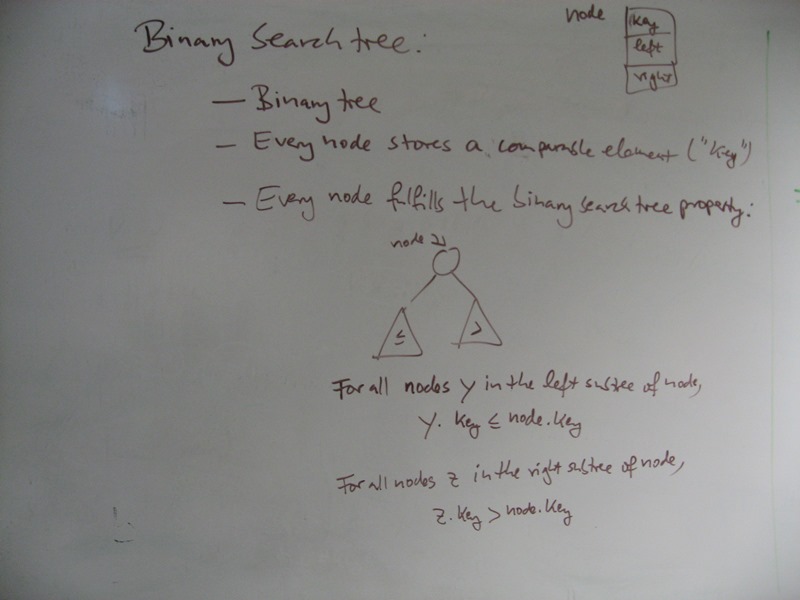 Binary Search tree:
node
key
left
right
— Binary tree
— Every node stores a comparable element ("key")
— Every node fulfills the binary search tree property:
node
≤
>
For all nodes y in the left subtree of node,
y.key ≤ node.key
For all nodes z in the right subtree of node,
z.key > node.key